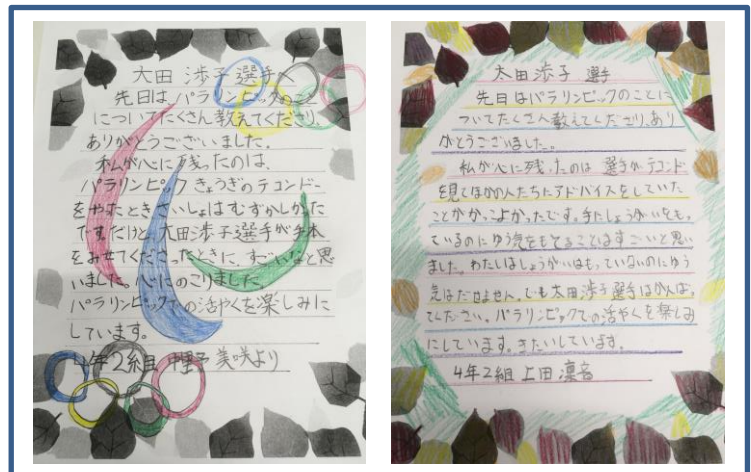 大田 渉子選手へ
先日はパラリンピックのこと
についてたくさん教えてくださり、
ありがとうございました。
私が心に残ったのは、
パラリンピックきょうぎのテコンドー
をやたときさいしょはむずかしかった
ですだけど、大田渉子選手が手本
をみせてくださったときに、すごいなと思
いました。心にのこりました。
パラリンピックでの活やくを楽しみに
しています。
4年2組 美咲より
太田渉子 選手
先日はパラリンピックのことに
ついてたくさん教えてくださり、あり
がとうございました。
私が心に残ったのは選手がテコンド
を見てほかの人たちにアドバイスをしていた
ことがかっこよかったです。またしょうがいをも
ているのにゆう気をもてることはすごいと思い
ました。わたしはしょうがいはもっていないのにゆう
気はだせません。でも太田渉子選手はがんばっ
てください。パラリンピックでの活やくを楽しみ
にしています。きたいしています。
4年2組 上田凛音